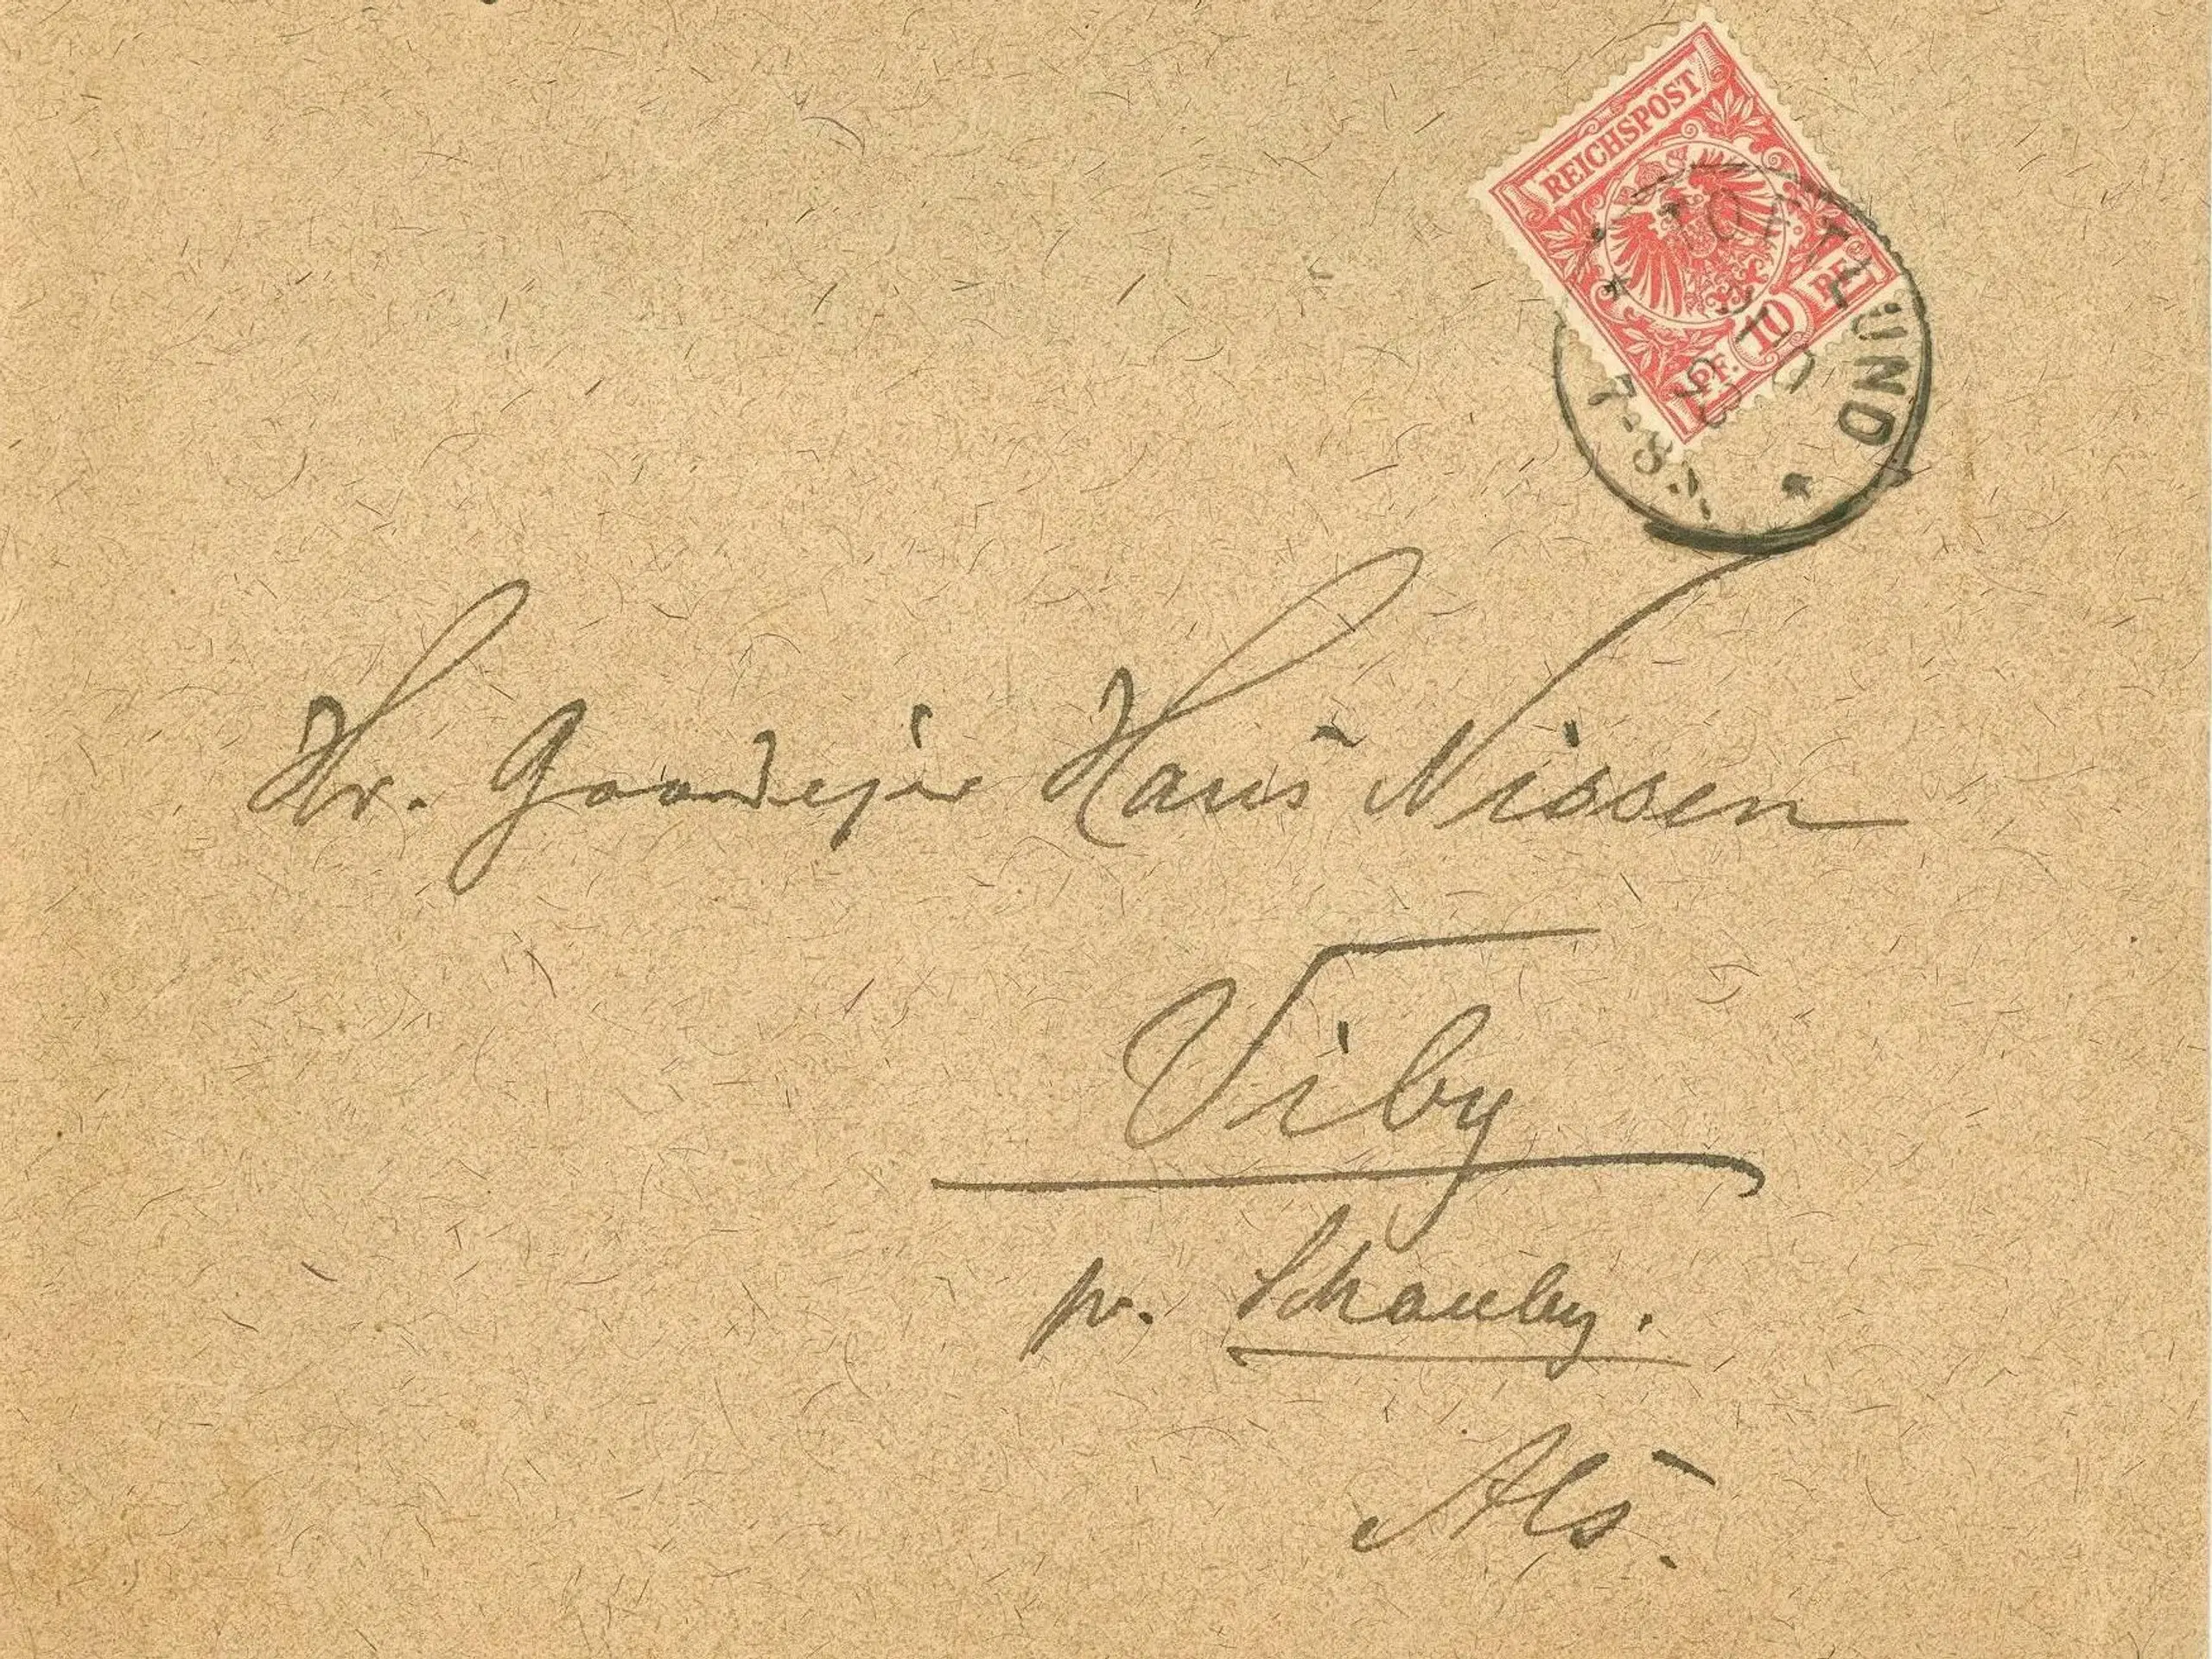 REICHSPOST
PF. 10 PF.
TOFTLUND
93
7-8
Hr. Gaardejer Hans Nissen
Viby
pr. Schauby.
Als.